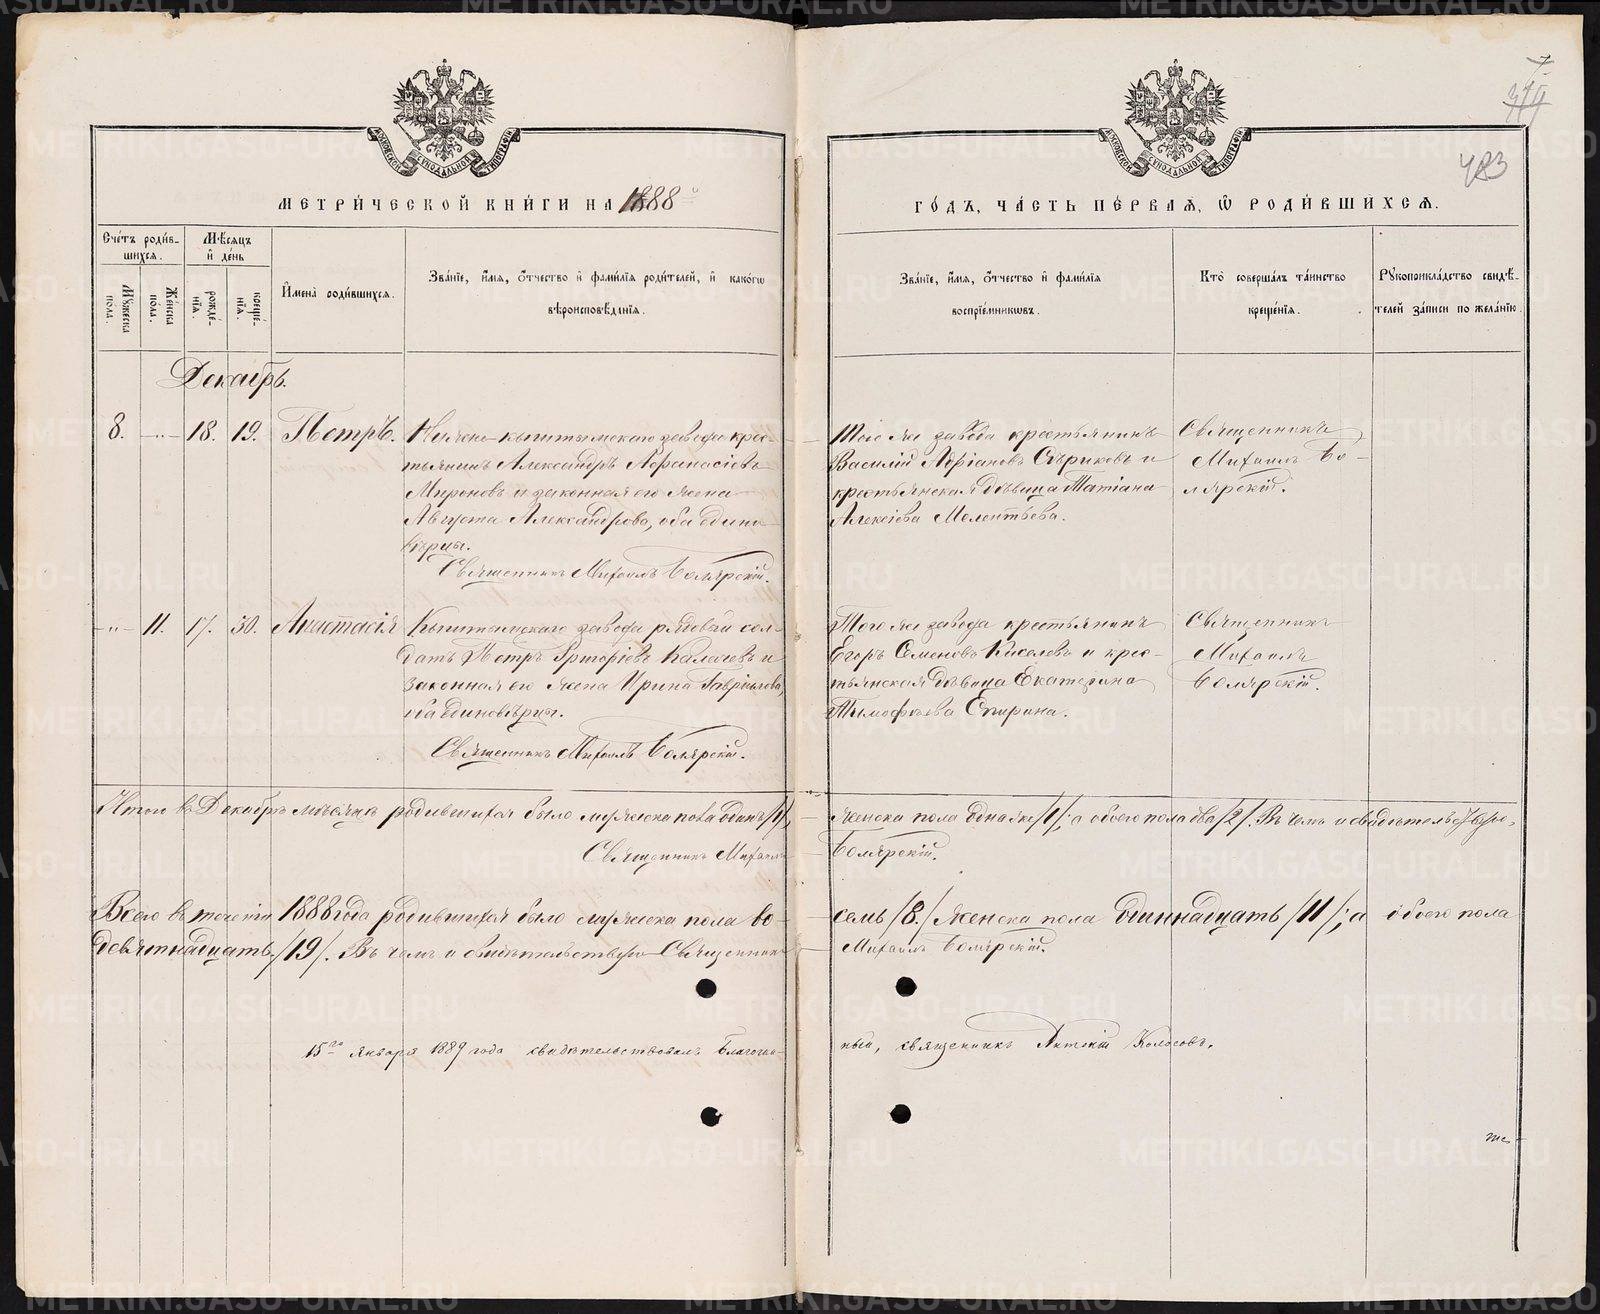 7
379
483
МОСКОВСКОЙ СѴНОДАЛЬНОЙ ТИПОГРАФІИ
МОСКОВСКОЙ СѴНОДАЛЬНОЙ ТИПОГРАФІИ
МЕТРИ́ЧЕСКОЙ КНИ́ГИ НА 1888й
ГО́ДЪ, ЧА́СТЬ ПЕ́РВАѦ, Ѡ РОДИ́ВШИХСѦ.
Сче́тъ роди́в-
шихсѧ.
Мѣ́сѧцъ
и҆ де́нь
Му́жеска
по́ла.
Же́нска
по́ла.
рожде́-
нїѧ.
креще́-
нїѧ.
И҆мена̀ роди́вшихсѧ.
Зва́нїе, и҆́мѧ, ѻ҆́тчество и҆ фами́лїѧ роди́телей, и҆ како́гѡ
вѣроисповѣ́данїѧ.
Зва́нїе, и҆́мѧ, ѻ҆́тчество и҆ фами́лїѧ
воспрїе́мникѡвъ.
Кто̀ соверша́лъ та́инство
креще́нїѧ.
Рꙋкоприкла́дство свидѣ́-
телей за́писи по жела́нїю.
Декабрь.
8. -"- 18. 19. Петръ. Нижне-кыштымскаго завода крес-
тьянинъ Александръ Аѳанасіевъ
Мироновъ и законная его жена
Августа Александрова, оба едино-
вѣрцы.
Священникъ Михаилъ Боярскій.
Того же завода крестьянинъ
Василій Адріановъ Стриковъ и
крестьянская дѣвица Татіана
Алексіева Мелентьева.
Священникъ
Михаилъ Бо-
лярскій.
-"- 11. 17. 30. Анастасія Кыштымскаго завода рядовой сол-
датъ Петръ Григоріевъ Калачевъ и
законная его жена Ирина Гавріилова,
оба единовѣрцы.
Священникъ Михаилъ Болярскій.
Того же завода крестьянинъ
Егоръ Семеновъ Киселевъ и крес-
тьянская дѣвица Екатерина
Тимофѣева Спирина.
Священникъ
Михаилъ
Болярскій.
Итого въ Декабрѣ мѣсяцѣ родившихся было мужеска пола одинъ /1/, женска пола одна же /1/; а обоего пола два /2/. Въ чемъ и свидѣтельствую,
Священникъ Михаилъ Болярскій.
Всего въ теченіи 1888 года родившихся было мужеска пола во- семь /8./ женска пола одиннадцать /11/; а обоего пола
девятнадцать /19/. Въ чемъ и свидѣтельствую Священникъ Михаилъ Болярскій.
15го января 1889 года свидѣтельствовалъ Благочин- ный, священникъ Антоній Колосовъ.